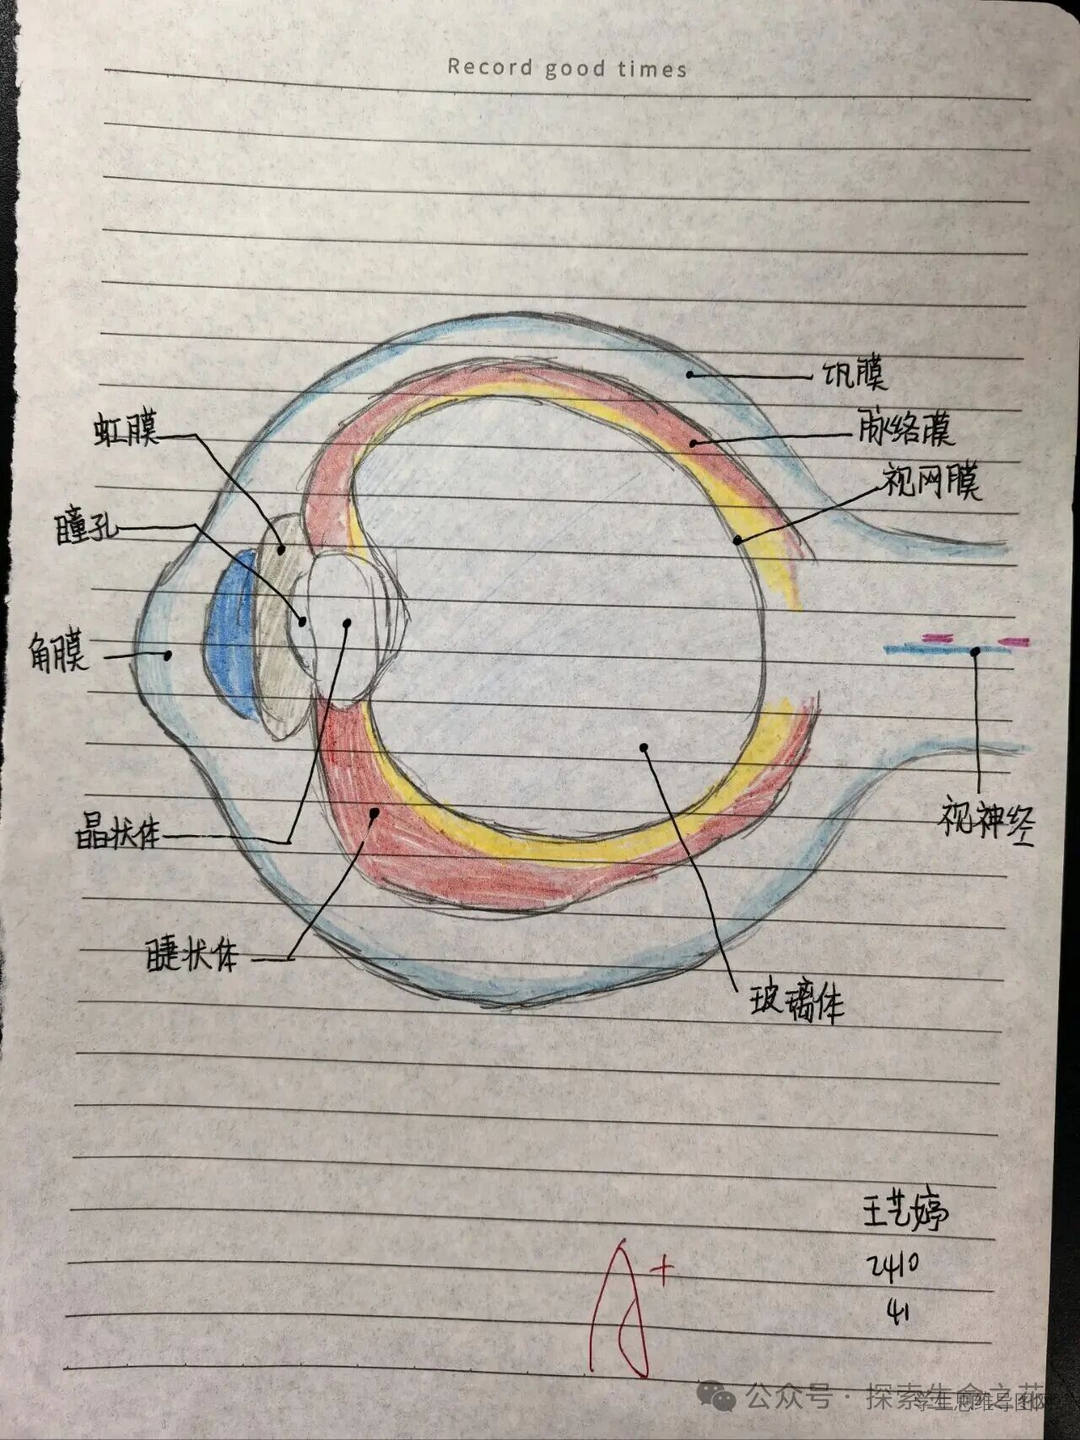 Record good times
巩膜
虹膜
脉络膜
视网膜
瞳孔
角膜
晶状体
视神经
睫状体
玻璃体
王艺婷
2410
41
A+
公众号·探索生命之花
学生思维导图网